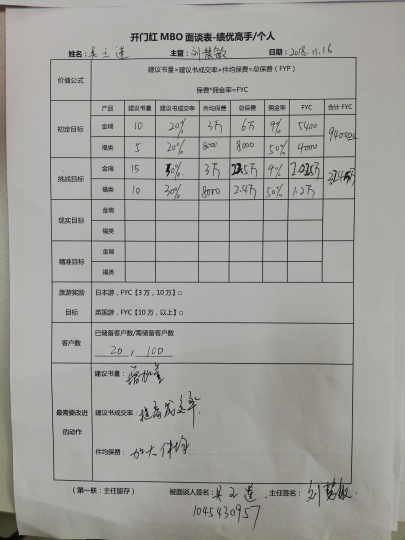 开门红 MBO 面谈表-绩优高手/个人
姓名: 吴玉莲 主管: 刘慧敏 日期: 2018.11.16
价值公式
建议书量×建议书成交率×件均保费=总保费(FYP)
保费*佣金率=FYC
产品 建议书量 建议书成交率 件均保费 总保费 佣金率 FYC 合计 FYC
初定目标
金瑞 10 20% 3万 6万 9% 5400
福类 5 20% 8000 8000 50% 4000
挑战目标
金瑞 15 3万 9%
福类 10 30% 8000 2.4万 50% 1.2万
现实目标
金瑞
福类
精准目标
金瑞
福类
旅游奖励
目标
日本游,FYC【3 万,10 万】□
英国游,FYC【10 万,以上】□
客户数
已储备客户数/需储备客户数
20 , 100
最需要改进
的动作
建议书量: 增加量
建议书成交率: 提高成交率
件均保费: 加大件均
(第一联:主任留存) 被面谈人签名: 吴玉莲 主任签名: 刘慧敏
1045430957